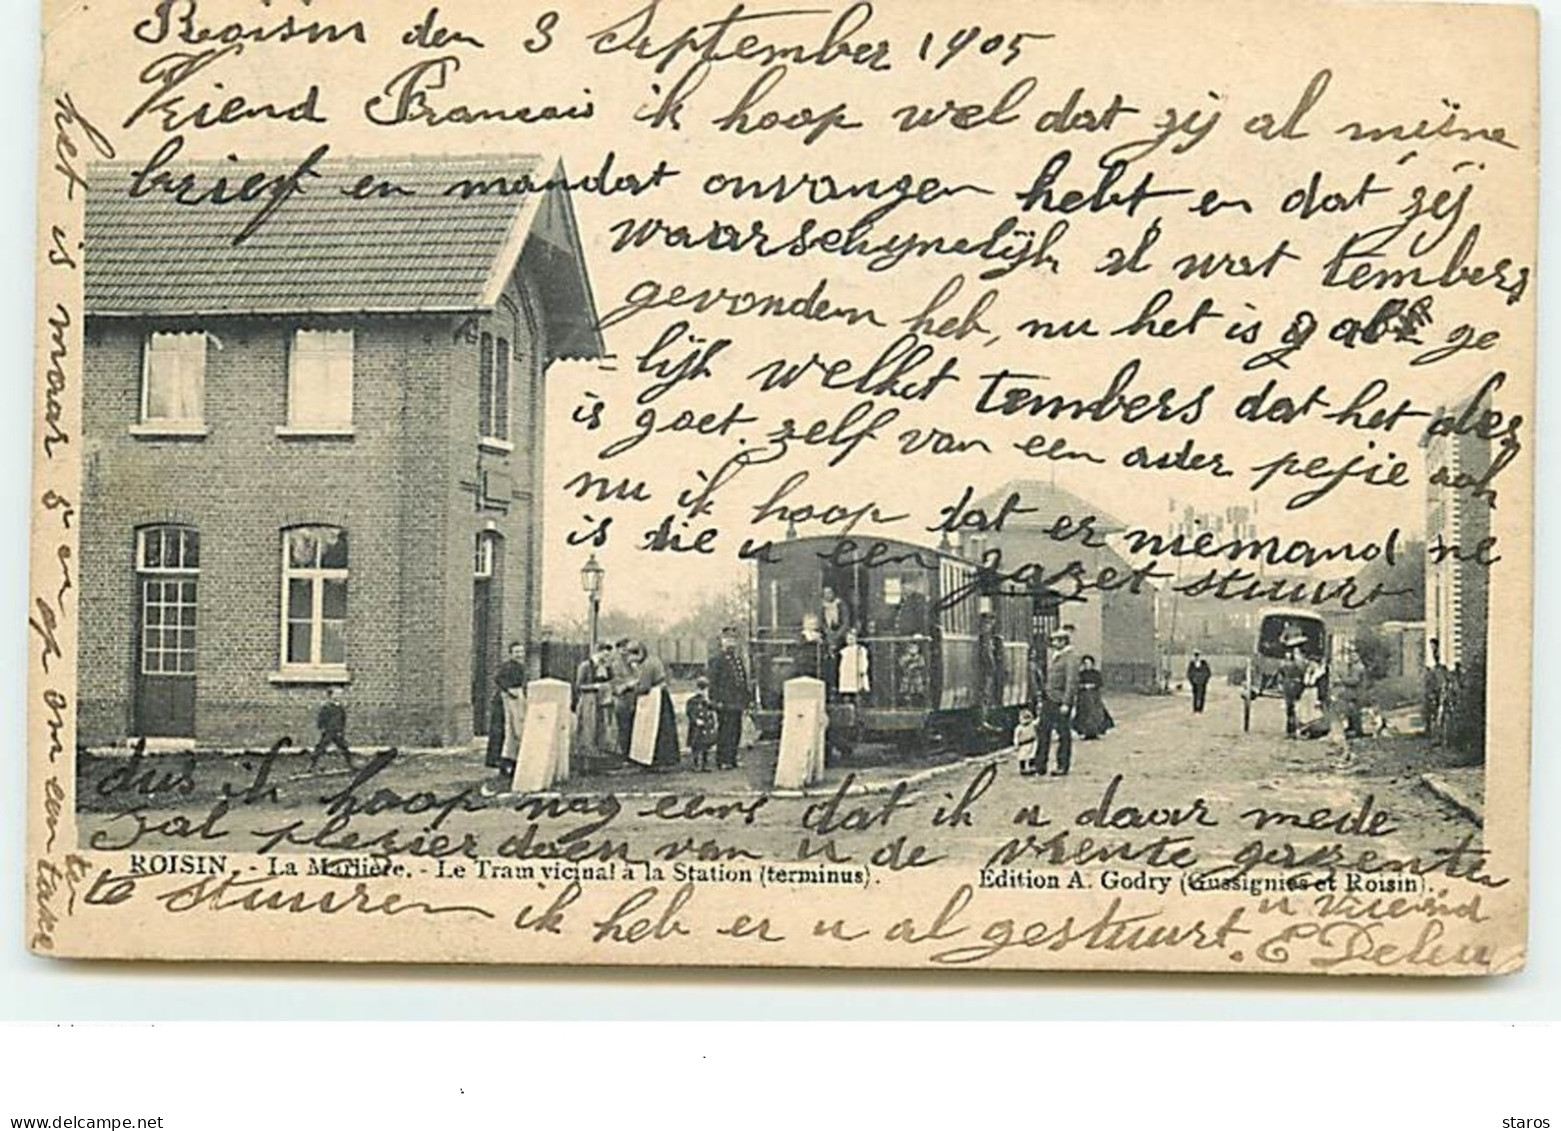 Roisin den 3 September 1905
Vriend Francois ik hoop wel dat zij al mijne
brief en mandat onvangen hebt en dat zij
waarschynelijk al wat tembers
gevonden heb, nu het is gal ge
lijk welket tembers dat het des
is goet zelf van een ader pejie ook
nu ik hoop dat er niemand ne
is die u een gazet stuurt
dus ik hoop nog eens dat ik u daar mede
zal plezier doen van u de vrente gazenten
te stuuren ik heb er u al gestuurt.
u vriend
E Deleu
het is maar 5 en op om een take
ten
ROISIN. - La Marlière. - Le Tram vicinal à la Station (terminus).
Edition A. Godry (Gussignies et Roisin).
delcampe.net
staros